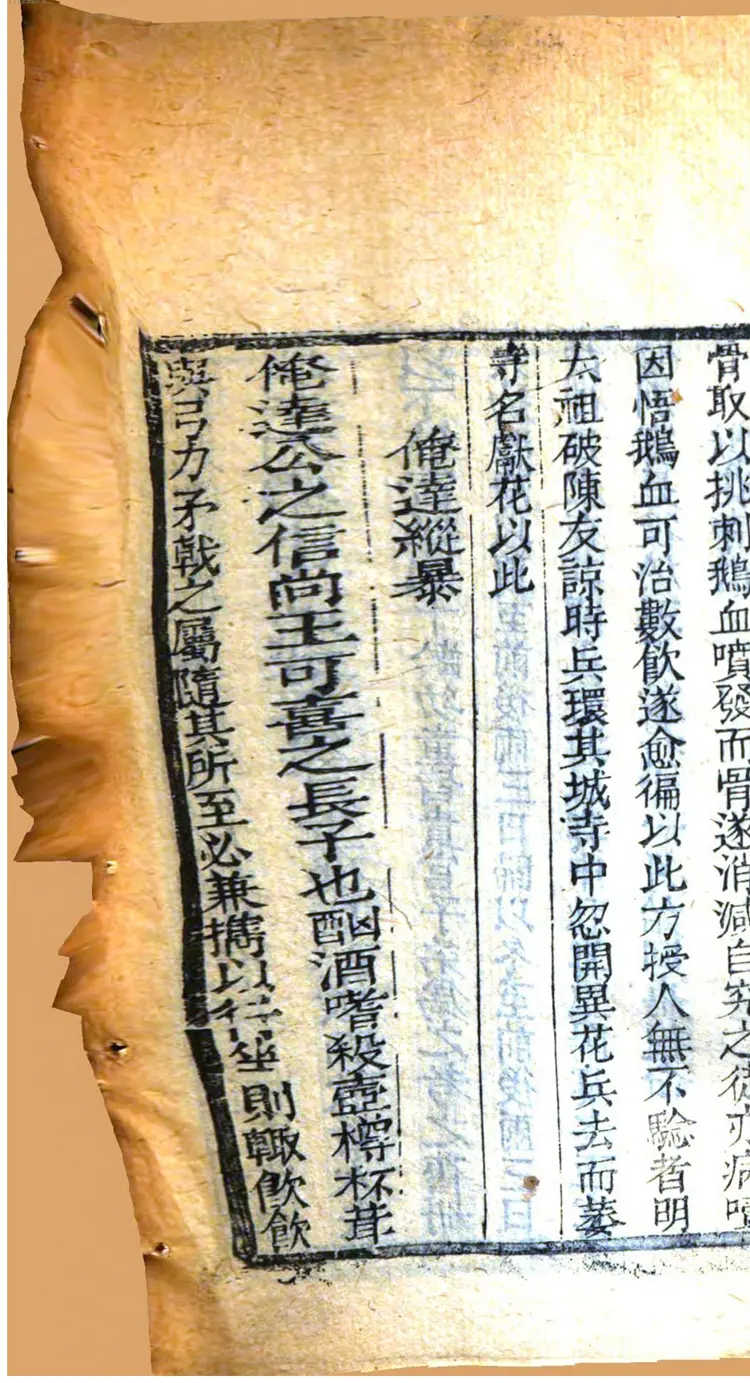 骨取以挑刺鵝血噴發而骨遂消減自穷之徒亦病噎
因悟鵝血可治數飲遂愈徧以此方授人無不驗者明
太祖破陳友諒時兵環其城寺中忽開異花兵去而萎
寺名獻花以此
俺達縱暴
俺達公之信尚王可喜之長子也酗酒嗜殺壺樽杯斝
與弓刀矛戟之屬隨其所至必兼攜以行坐則輙飲飲